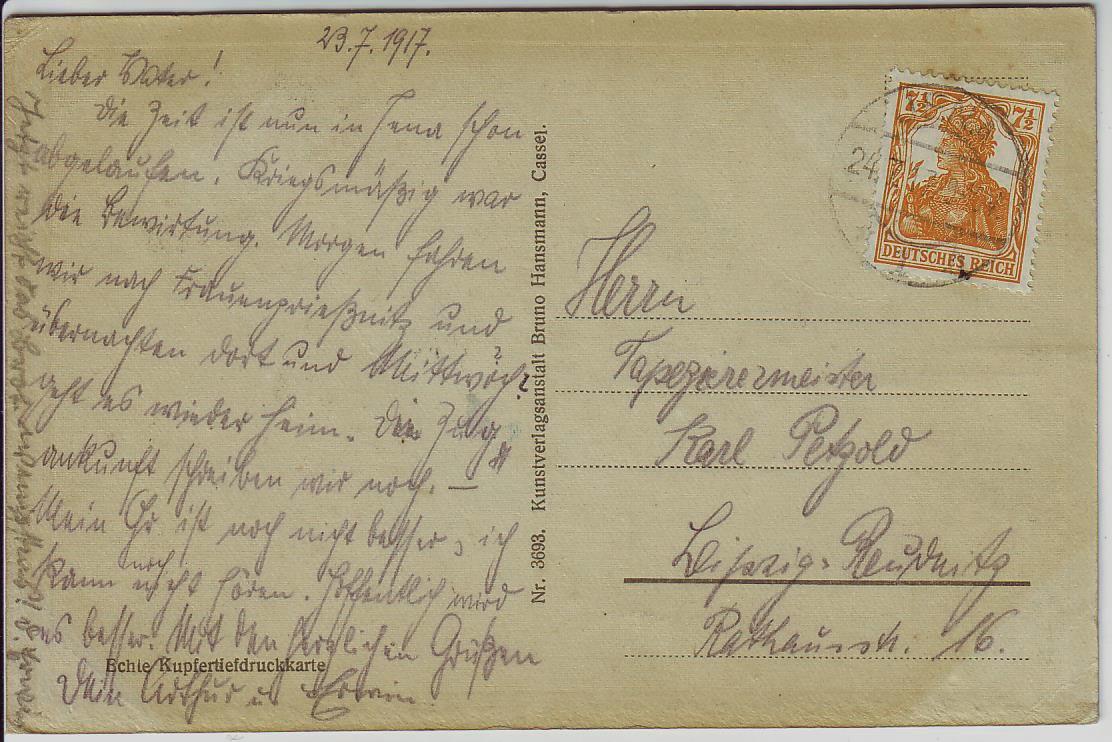 23.7.1917.
Lieber Vater!
Die Zeit ist nun in Jena schon
abgelaufen. Kriegsmäßig war
die Bewirtung. Morgen fahren
wir nach Frauenprießnitz und
übernachten dort und Mittwoch?
geht es wieder heim. Die Zug
ankunft schreiben wir noch. —
Mein Ohr ist noch nicht besser, ich
kann noch nicht hören. Hoffentlich wird
es besser. Mit den herzlichen Grüßen
Dein Arthur u. Erwin.
Jetzt reicht das
Echte Kupfertiefdruckkarte
Nr. 3693. Kunstverlagsanstalt Bruno Hansmann, Cassel.
7½ 7½
DEUTSCHES REICH
24.7.
Herrn
Tapezierermeister
Karl Petzold
Leipzig-Reudnitz
Rathausstr. 16.